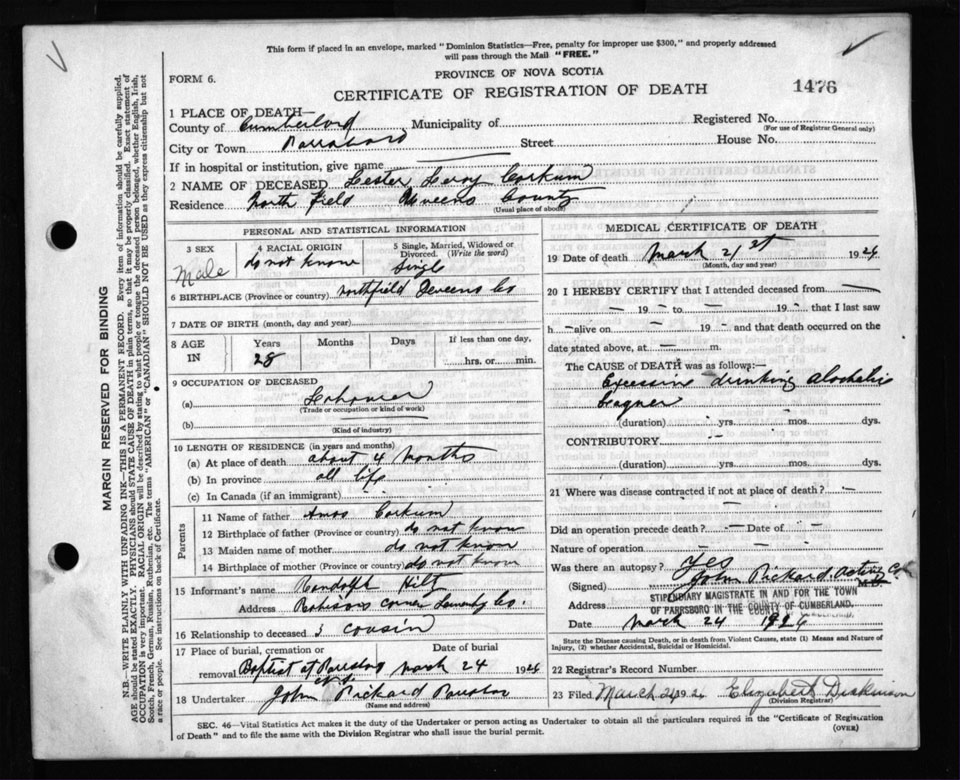 This form if placed in an envelope, marked "Dominion Statistics—Free, penalty for improper use $300," and properly addressed
will pass through the Mail "FREE."
FORM 6.
PROVINCE OF NOVA SCOTIA
CERTIFICATE OF REGISTRATION OF DEATH
1476
1 PLACE OF DEATH—
County of Cumberland Municipality of Registered No.
(For use of Registrar General only)
City or Town Parrsboro Street House No.
If in hospital or institution, give name
2 NAME OF DECEASED Lester Leroy Corkum
Residence North field Queens County
(Usual place of abode)
PERSONAL AND STATISTICAL INFORMATION
3 SEX 4 RACIAL ORIGIN 5 Single, Married, Widowed or
Divorced. (Write the word)
Male do not know Single
6 BIRTHPLACE (Province or country) Northfield Queens Co
7 DATE OF BIRTH (month, day and year)
8 AGE IN Years Months Days If less than one day,
28 hrs. or min.
9 OCCUPATION OF DECEASED
(a)
(Trade or occupation or kind of work)
(b)
(Kind of industry)
10 LENGTH OF RESIDENCE (in years and months)
(a) At place of death about 4 Months
(b) In province all life
(c) In Canada (if an immigrant)
Parents
11 Name of father Amos Corkum
12 Birthplace of father (Province or country) do not know
13 Maiden name of mother do not know
14 Birthplace of mother (Province or country) do not know
15 Informant's name Randolph Hilt
Address corner Co.
16 Relationship to deceased 3 cousin
17 Place of burial, cremation or Date of burial
removal Baptist March 24 1926
18 Undertaker John Rickard
(Name and address)
MEDICAL CERTIFICATE OF DEATH
19 Date of death March 21st 1926
(Month, day and year)
20 I HEREBY CERTIFY that I attended deceased from —
— 19 — to — 19 — that I last saw
h — alive on — 19 — and that death occurred on the
date stated above, at — m.
The CAUSE of DEATH was as follows:—
Excessive drinking
(duration) yrs. mos. dys.
CONTRIBUTORY
(duration) yrs. mos. dys.
21 Where was disease contracted if not at place of death? —
Did an operation precede death? — Date of —
Nature of operation —
Was there an autopsy? Yes
(Signed) John Rickard Acting M.D.
Address STIPENDIARY MAGISTRATE IN AND FOR THE TOWN
OF PARRSBORO IN THE COUNTY OF CUMBERLAND.
Date March 24 1926
State the Disease causing Death, or in death from Violent Causes, state (1) Means and Nature of
Injury, (2) whether Accidental, Suicidal or Homicidal.
22 Registrar's Record Number
23 Filed March 24 1926 Elizabeth Dickinson
(Division Registrar)
SEC. 46—Vital Statistics Act makes it the duty of the Undertaker or person acting as Undertaker to obtain all the particulars required in the "Certificate of Registration
of Death" and to file the same with the Division Registrar who shall issue the burial permit.
(OVER)
MARGIN RESERVED FOR BINDING
N.B.—WRITE PLAINLY WITH UNFADING INK—THIS IS A PERMANENT RECORD. Every item of information should be carefully supplied.
AGE should be stated EXACTLY. PHYSICIANS should STATE CAUSE OF DEATH in plain terms, so that it may be properly classified. Exact statement of
OCCUPATION is very important. RACIAL ORIGIN will be described by stating to what people or tongue the deceased person belonged, whether English, Irish,
Scotch, French, German, Russian, Ruthenian, etc. The terms "AMERICAN" or "CANADIAN" SHOULD NOT BE USED as they express citizenship but not
a race or people. See instructions on back of Certificate.